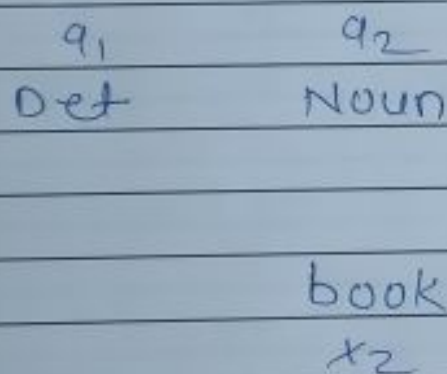 q1 q2
Det Noun
book
x2